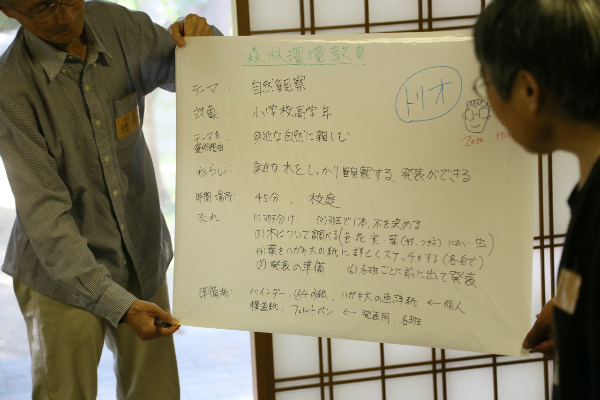 森林環境教育
テーマ： 自然観察
トリオ
対象： 小学校高学年
テーマを
選んだ理由： 身近な自然に親しむ
ねらい： 身近な木をしっかり観察する、発表ができる
時間・場所： 45分、校庭
流れ (1)班分け (2)班で1本、木を決める
(3)木について調べる(色 花 実 葉(形、つき方) におい 虫)
(4)葉をハガキ大の紙に詳しくスケッチする(各自で)
(5)発表の準備 (6)各班ごとに前に出て発表
準備物： バインダー、の紙、ハガキ大の画用紙 ← 個人
模造紙、フェルトペン ← 発表用、各班